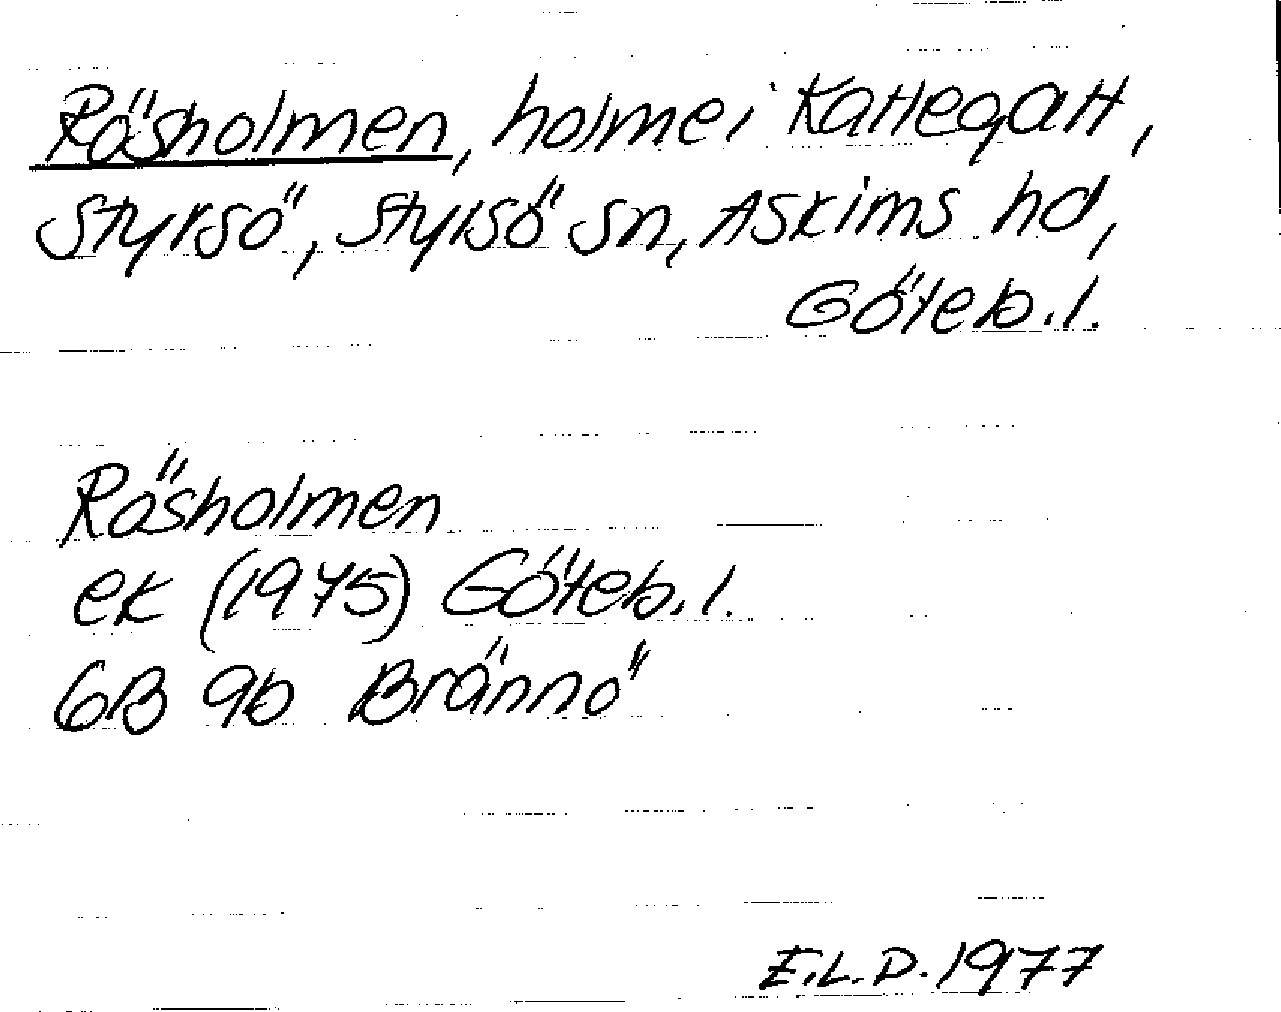 Rösholmen, holme i Kattegatt,
Styrsö, Styrsö sn, Askims hd,
Göteb.l.
Rösholmen
ek (1975) Göteb.l.
6B 9b Brännö
E.L.D. 1977